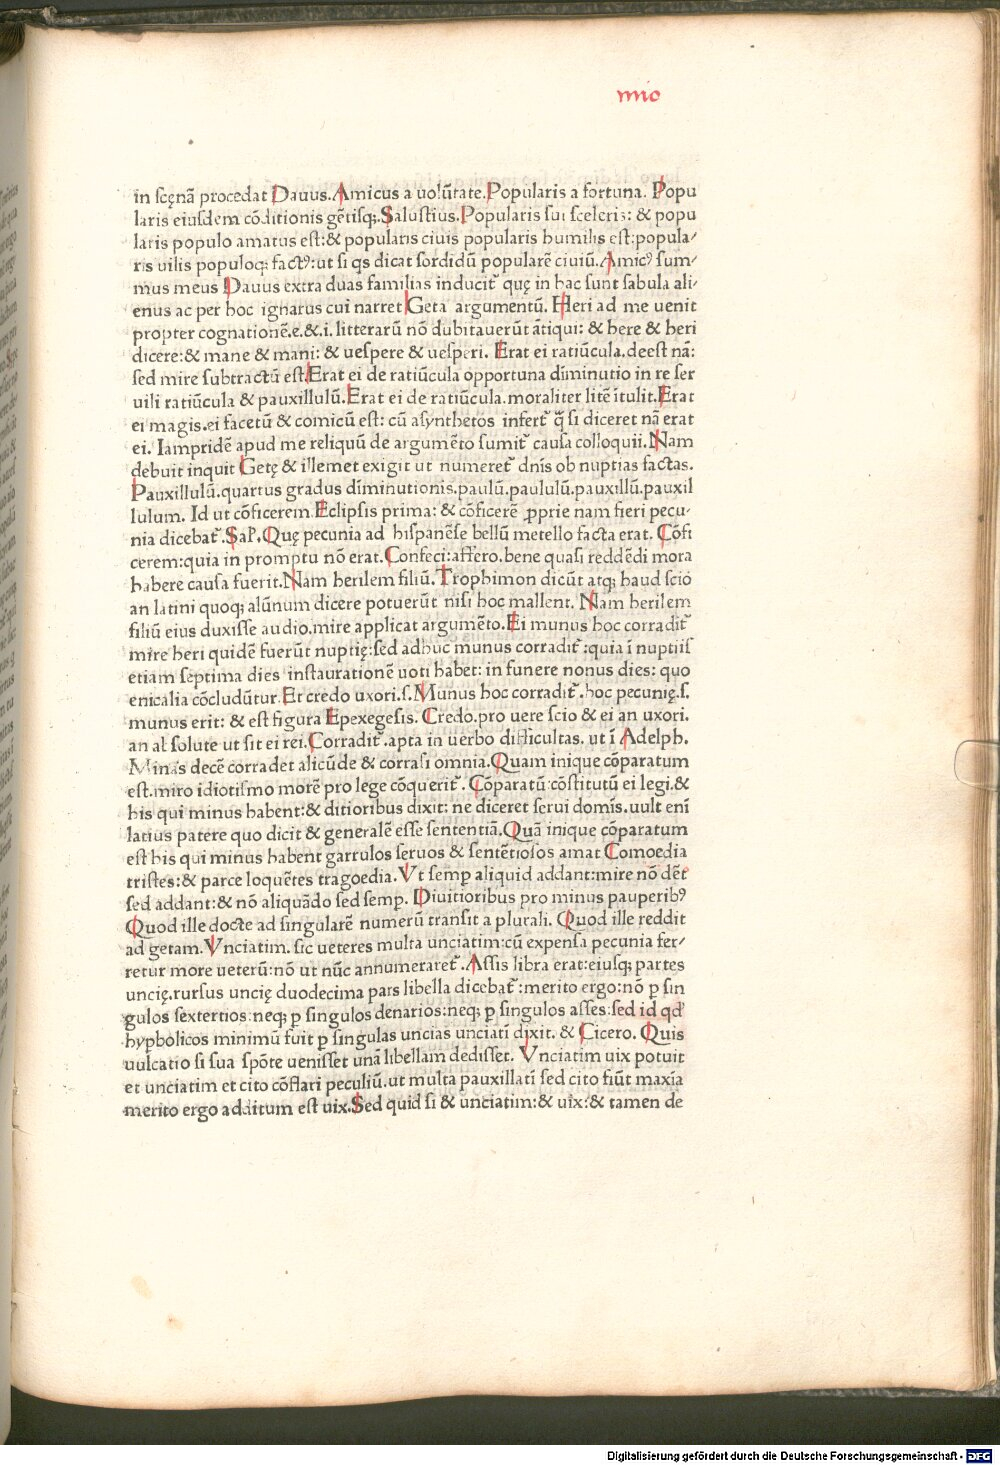 mio
in scęnã procedat Dauus. Amicus a uolũtate. Popularis a fortuna. Popu
laris eiusdem cõditionis gẽtisq;. Salustius. Popularis sui sceleris: & popu
laris populo amatus est: & popularis ciuis popularis humilis est: popula/
ris uilis populoq; factꝰ: ut si qs dicat sordidũ popularẽ ciuiũ. Amicꝰ sum/
mus meus Dauus extra duas familias inducit᷑ quę in hac sunt fabula ali/
enus ac per hoc ignarus cui narret Geta argumentũ. Heri ad me uenit
propter cognationẽ. e. &. i. litterarũ nõ dubitauerũt ãtiqui: & here & heri
dicere: & mane & mani: & uespere & uesperi. Erat ei ratiũcula. deest nã:
sed mire subtractũ est. Erat ei de ratiũcula opportuna diminutio in re ser
uili ratiũcula & pauxillulũ. Erat ei de ratiũcula. moraliter litẽ ĩtulit. Erat
ei magis. ei facetũ & comicũ est: cũ asynthetos infert᷑ q̃ si diceret nã erat
ei. Iampridẽ apud me reliquũ de argumẽto sumit᷑ causa colloquii. Nam
debuit inquit Getę & illemet exigit ut numeret᷑ dnis ob nuptias factas.
Pauxillulũ. quartus gradus diminutionis. paulũ. paululũ. pauxillũ. pauxil
lulum. Id ut cõficerem. Eclipsis prima: & cõficerẽ ꝓprie nam fieri pecu/
nia dicebat᷑. Sal̃. Quę pecunia ad hispanẽse bellũ metello facta erat. Cõfi
cerem: quia in promptu nõ erat. Confeci: affero. bene quasi reddẽdi mora
habere causa fuerit. Nam herilem filiũ. Trophimon dicũt atq; haud scio
an latini quoq; alũnum dicere potuerũt nisi hoc mallent. Nam herilem
filiũ eius duxisse audio. mire applicat argumẽto. Ei munus hoc corradit᷑
mire heri quidẽ fuerũt nuptię: sed adhuc munus corradit᷑: quia ĩ nuptiis
etiam septima dies instaurationẽ uoti habet: in funere nonus dies: quo
enicalia cõcludũtur. Et credo uxori. s. Munus hoc corradit᷑. hoc pecunię. s.
munus erit: & est figura Epexegesis. Credo. pro uere scio & ei an uxori.
an absolute ut sit ei rei. Corradit᷑. apta in uerbo difficultas. ut ĩ Adelph.
Minas decẽ corradet alicũde & corrasi omnia. Quam inique cõparatum
est. miro idiotismo morẽ pro lege cõquerit᷑. Cõparatũ cõstitutũ ei legi. &
his qui minus habent: & ditioribus dixit: ne diceret serui domĩs. uult enĩ
latius patere quo dicit & generalẽ esse sententiã. Quã inique cõparatum
est his qui minus habent garrulos seruos & sentẽtiosos amat Comoedia
tristes: & parce loquẽtes tragoedia. Vt semꝑ aliquid addant: mire nõ dẽt
sed addant: & nõ aliquãdo sed semꝑ. Diuitioribus pro minus pauperibꝰ
Quod ille docte ad singularẽ numerũ transit a plurali. Quod ille reddit
ad getam. Vnciatim. sic ueteres multa unciatim: cũ expensa pecunia fer/
retur more ueterũ: nõ ut nũc annumeraret᷑. Assis libra erat: eiusq; partes
uncię. rursus uncię duodecima pars libella dicebat᷑: merito ergo: nõ ꝑ sin
gulos sextertios: neq; ꝑ singulos denarios: neq; ꝑ singulos asses: sed id qđ
hyꝑbolicos minimũ fuit ꝑ singulas uncias unciatĩ dixit. & Cicero. Quis
uulcatio si sua spõte uenisset unã libellam dedisset. Vnciatim uix potuit
et unciatim et cito cõflari peculiũ. ut multa pauxillatĩ sed cito fiũt maxĩa
merito ergo additum est uix. Sed quid si & unciatim: & uix: & tamen de
Digitalisierung gefördert durch die Deutsche Forschungsgemeinschaft - DFG